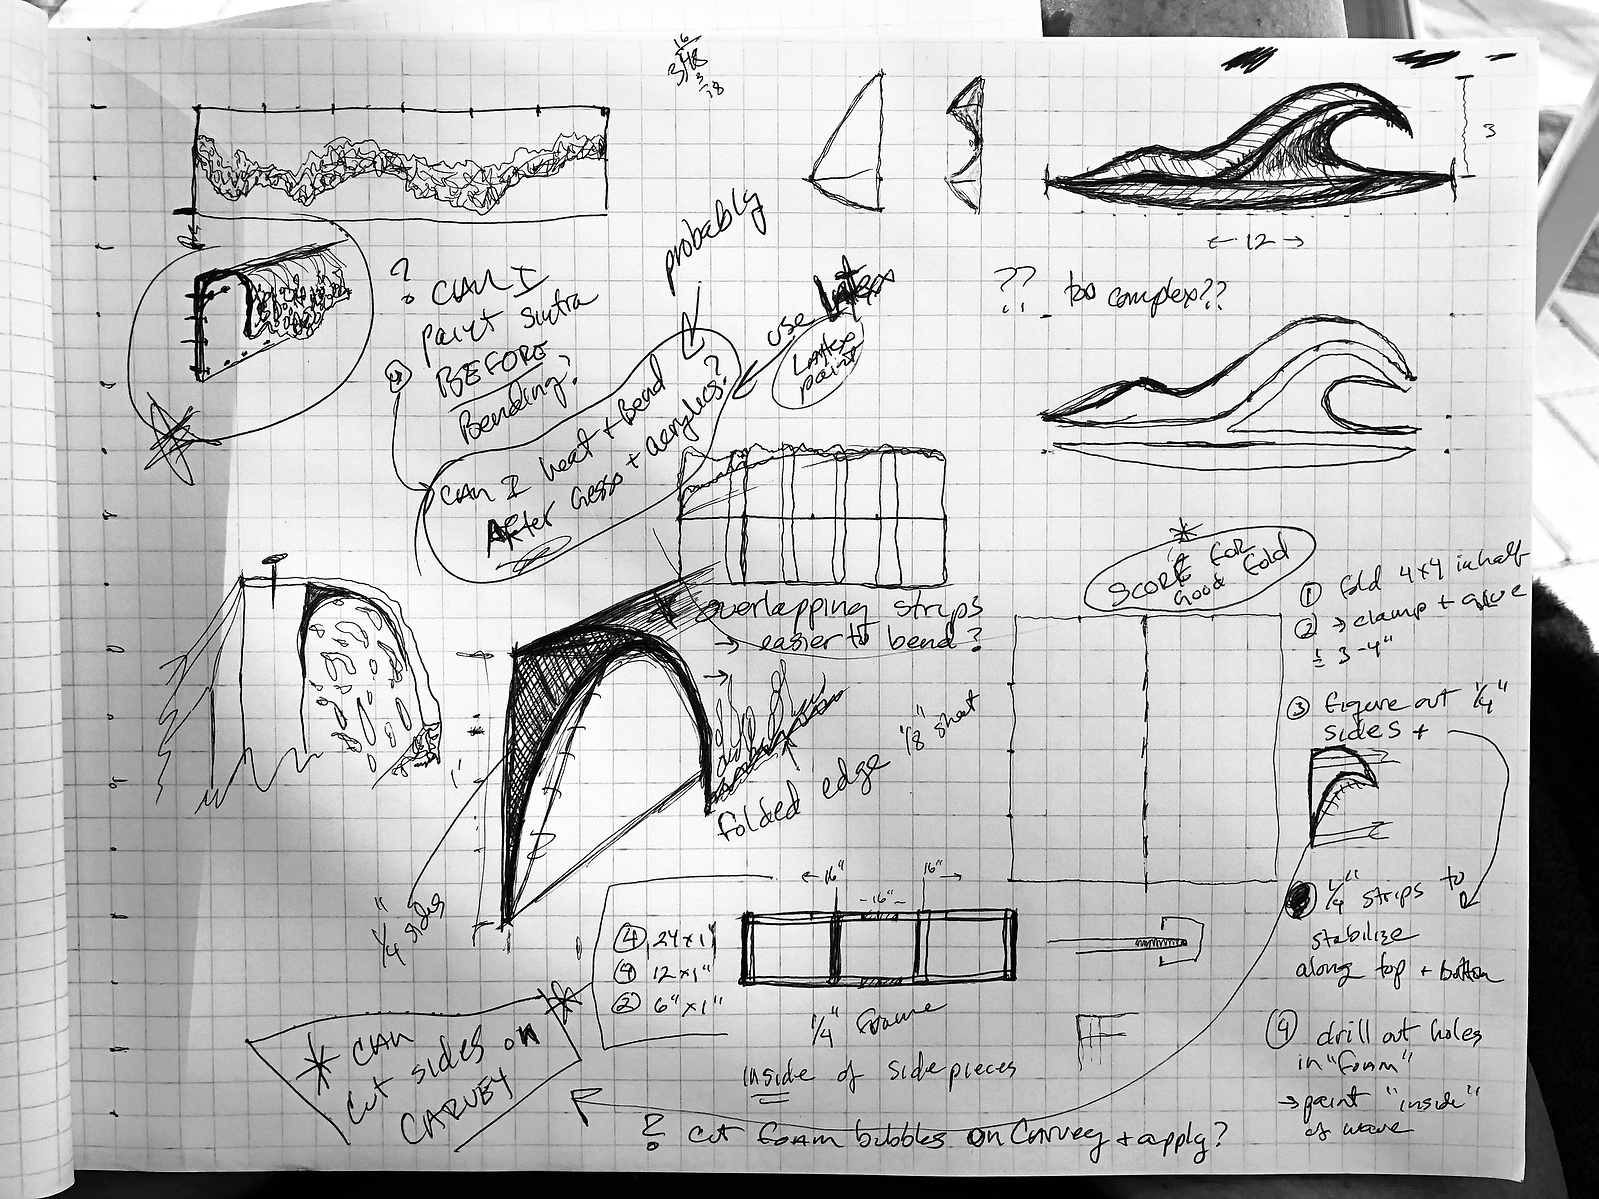 16
3)48
3
18
3
← 12 →
probably
? CAN I
paint sintra
BEFORE
Bending?
use
Latex
paint
CAN I heat + Bend
After Gesso + acrylics?
?? too complex??
overlapping strips
→ easier to bend?
*
SCORE FOR
Good Fold
① fold 4x4 in half
② → clamp + glue
3-4"
③ Figure out 1/4"
sides +
1/4" strips to
stabilize
along top + bottom
④ drill out holes
in "foam"
→ paint "inside"
of wave
1'
folded edge 1/8" sheet
1/4" sides
← 16"
-16"-
16" →
④ 24 x 1"
④ 12 x 1"
② 6" x 1"
1/4" frame
inside of side pieces
* CAN
cut sides on
CARVEY
? cut foam bubbles on Carvey + apply?